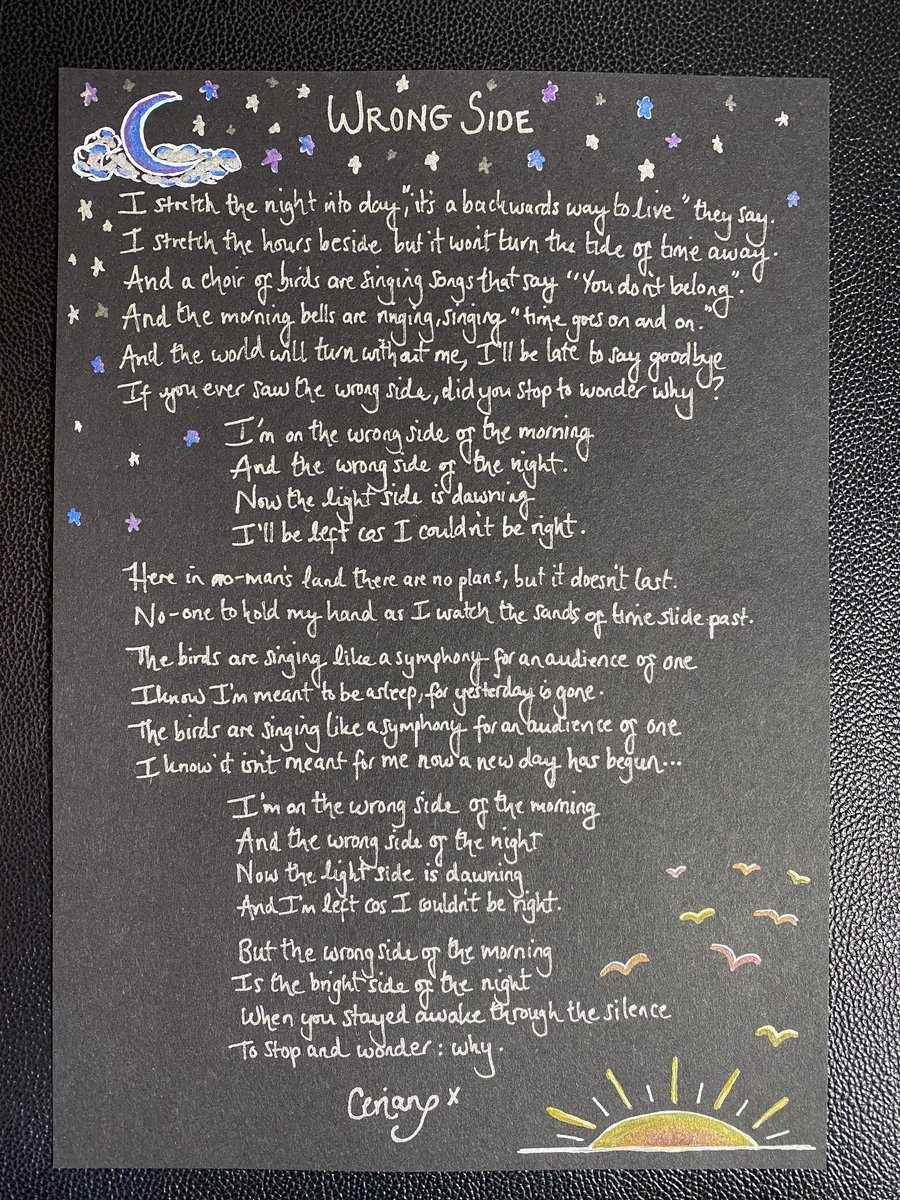 WRONG SIDE
I stretch the night into day, "it's a backwards way to live" they say.
I stretch the hours beside but it won't turn the tide of time away.
And a choir of birds are singing songs that say "You don't belong".
And the morning bells are ringing, singing "time goes on and on."
And the world will turn without me, I'll be late to say goodbye
If you ever saw the wrong side, did you stop to wonder why?
I'm on the wrong side of the morning
And the wrong side of the night.
Now the light side is dawning
I'll be left cos I couldn't be right.
Here in no-man's land there are no plans, but it doesn't last.
No-one to hold my hand as I watch the sands of time slide past.
The birds are singing like a symphony for an audience of one
I know I'm meant to be asleep, for yesterday is gone.
The birds are singing like a symphony for an audience of one
I know it isn't meant for me now a new day has begun...
I'm on the wrong side of the morning
And the wrong side of the night
Now the light side is dawning
And I'm left cos I couldn't be right.
But the wrong side of the morning
Is the bright side of the night
When you stayed awake through the silence
To stop and wonder: why.
Cerian x